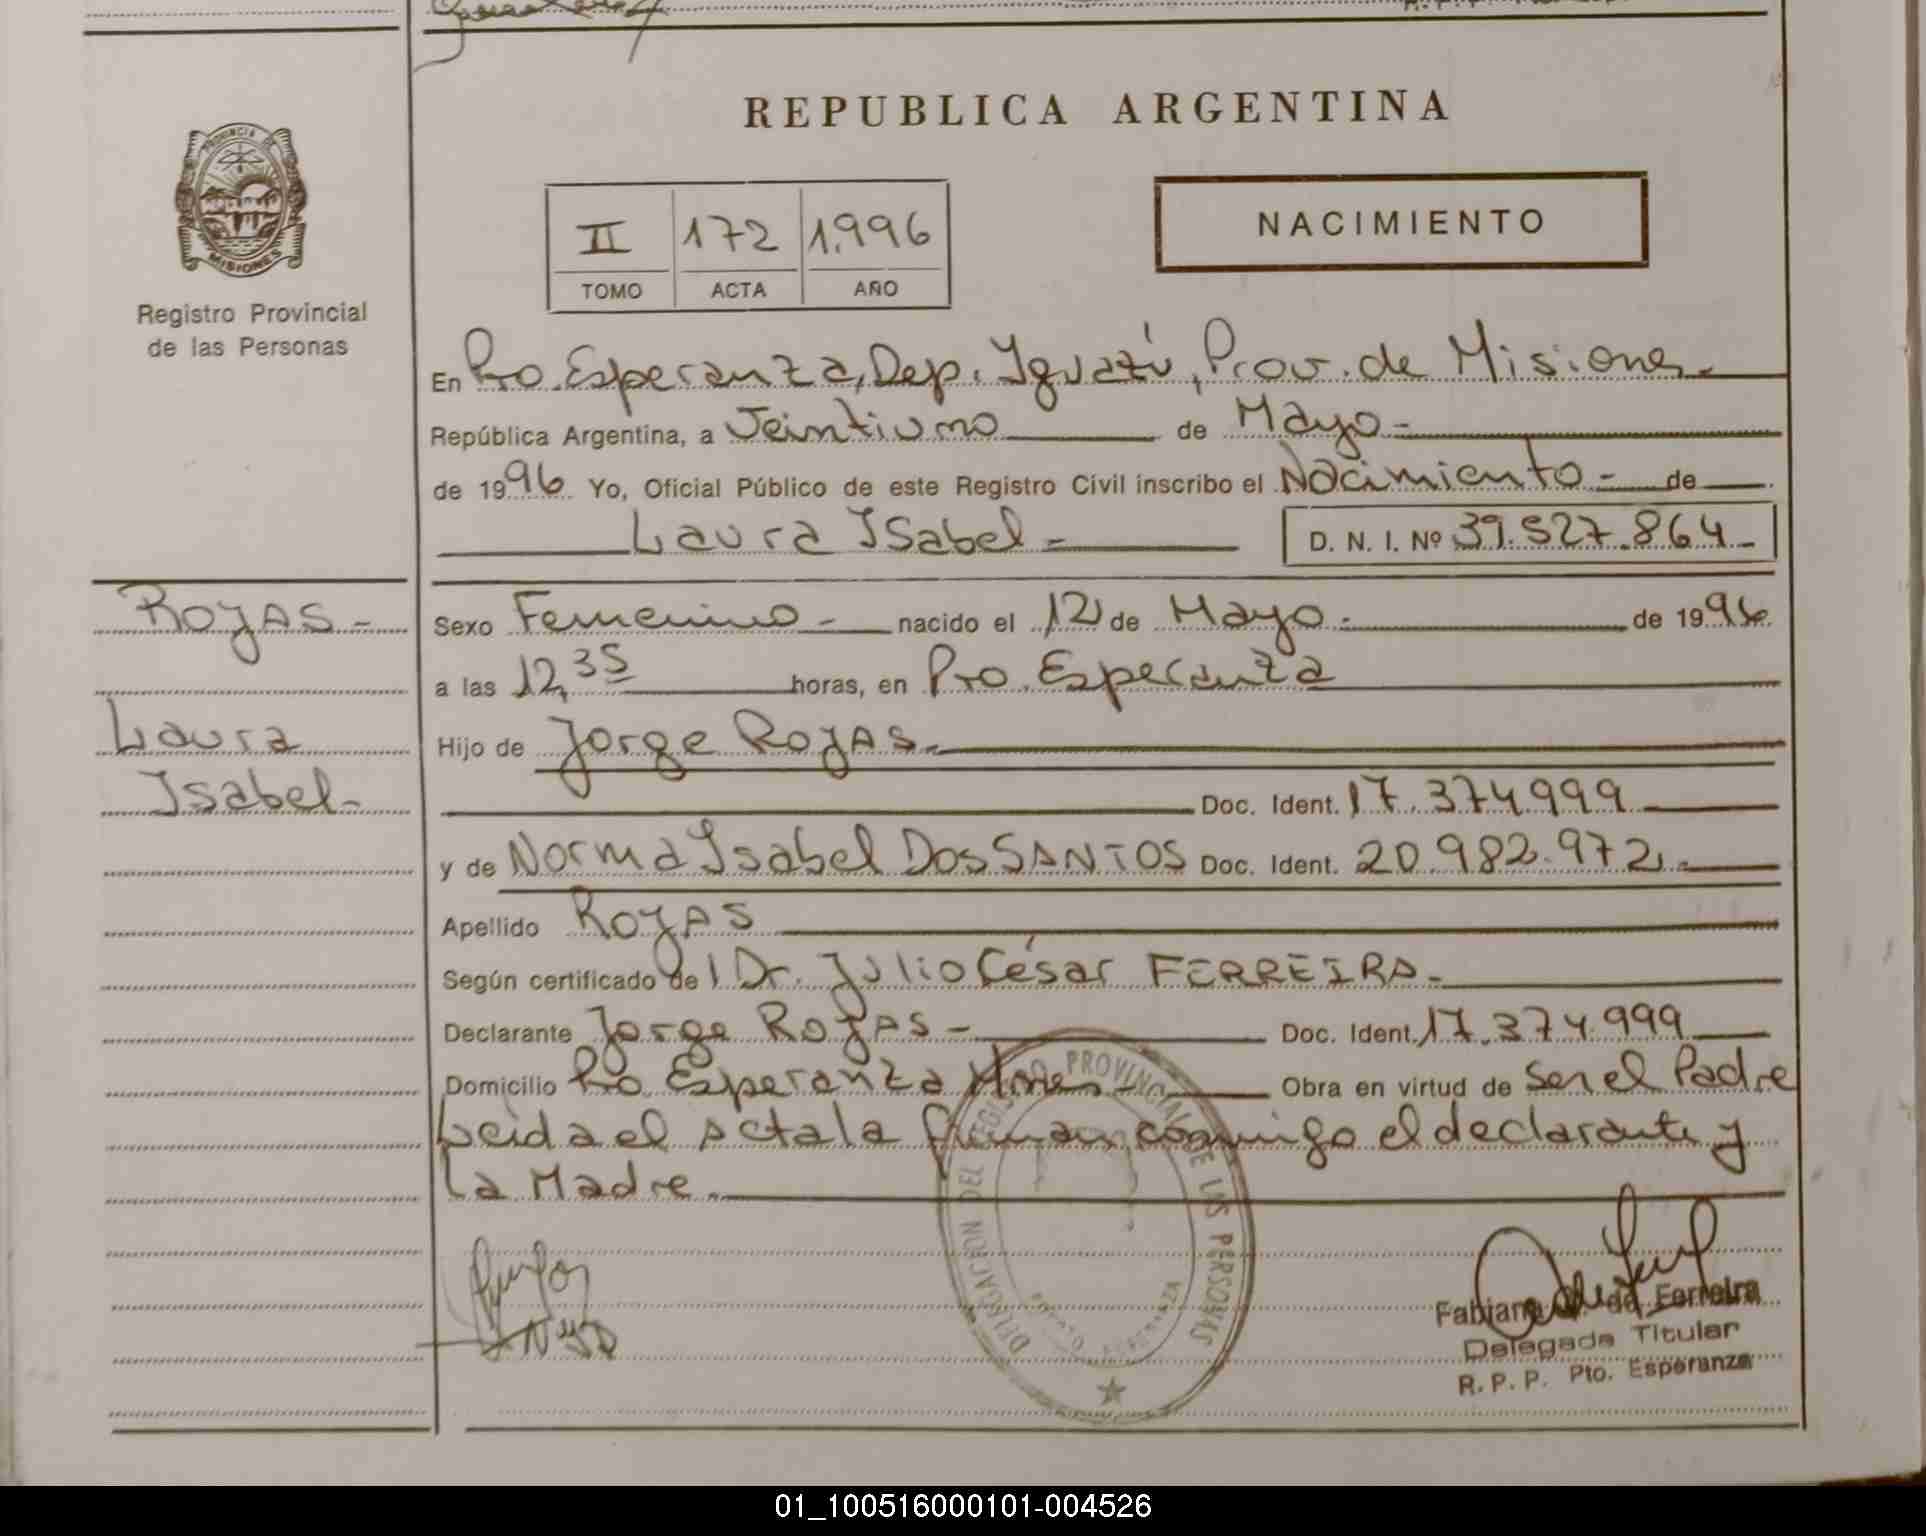 REPUBLICA ARGENTINA
PROVINCIA DE
MISIONES
Registro Provincial
de las Personas
II 172 1.996
TOMO ACTA AÑO
NACIMIENTO
En Pto. Esperanza, Dep. Iguazú, Prov. de Misiones.-
República Argentina, a Veintiuno de Mayo-
de 1996 Yo, Oficial Público de este Registro Civil inscribo el Nacimiento- de
Laura Isabel- D. N. I. Nº 39.527.864-
ROJAS-
Laura
Isabel-
Sexo Femenino- nacido el 12 de Mayo- de 1996.
a las 12,35 horas, en Pto. Esperanza
Hijo de Jorge ROJAS-
Doc. Ident. 17.374.999
y de Norma Isabel DOS SANTOS Doc. Ident. 20.982.972.-
Apellido ROJAS
Según certificado de l Dr. Julio César FERREIRA-
Declarante Jorge ROJAS- Doc. Ident. 17.374.999
Domicilio Pto. Esperanza Mnes- Obra en virtud de Ser el Padre
Leida el Acta la firman conmigo el declarante y
la Madre.
DELEGACION DEL REGISTRO PROVINCIAL DE LAS PERSONAS
ESPERANZA
de Ferreira
Delegada Titular
R. P. P. Pto. Esperanza
01_100516000101-004526